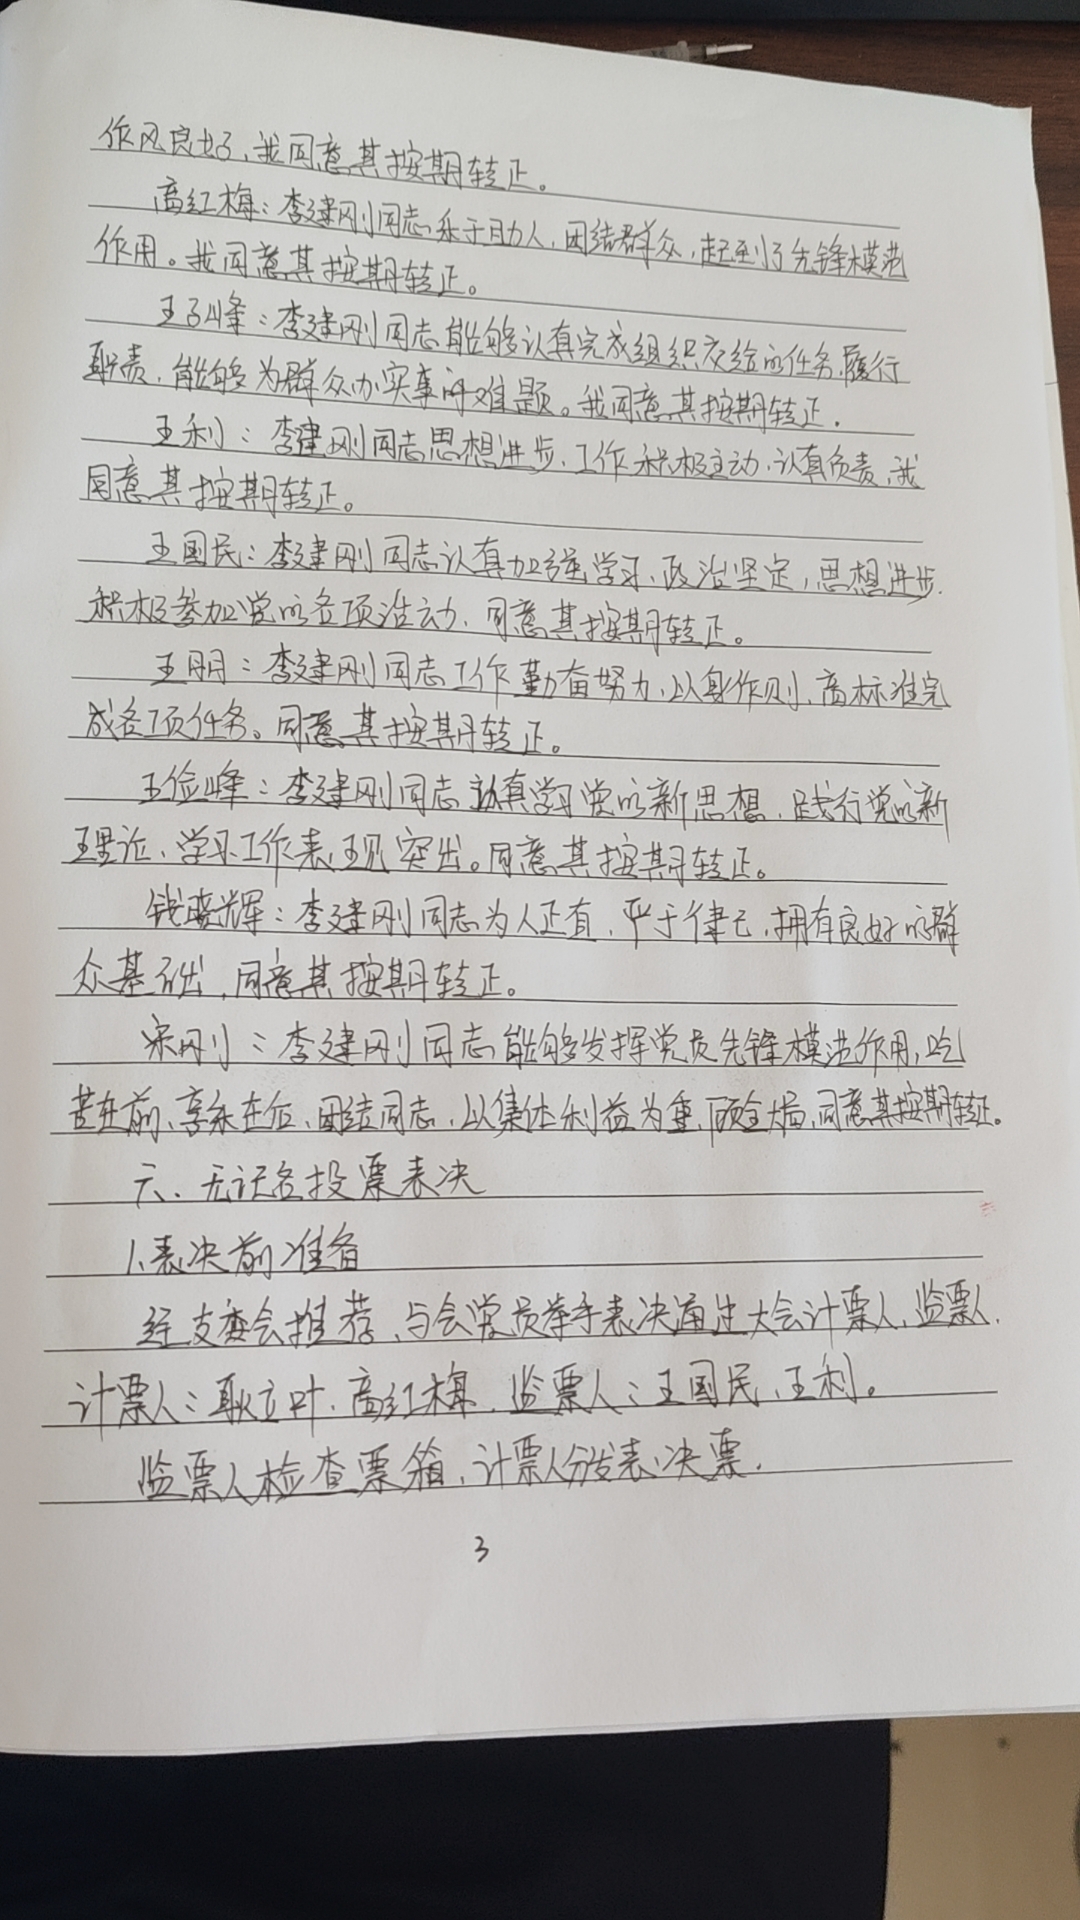 作风良好,我同意其按期转正。
高红梅:李建刚同志乐于助人,团结群众,起到了先锋模范
作用。我同意其按期转正。
王子峰:李建刚同志能够认真完成组织交给的任务,履行
职责,能够为群众办实事解难题。我同意其按期转正.
王利:李建刚同志思想进步、工作积极主动,认真负责,我
同意其按期转正。
王国民:李建刚同志认真加强学习、政治坚定,思想进步.
积极参加党的各项活动、同意其按期转正。
王朋:李建刚同志工作勤奋努力,以身作则、高标准完
成各项任务。同意其按期转正。
王俭峰:李建刚同志认真学习党的新思想,践行党的新
理论、学习工作表现突出。同意其按期转正。
钱晓辉:李建刚同志为人正直,严于律己,拥有良好的群
众基础,同意其按期转正。
宋刚:李建刚同志能够发挥党员先锋模范作用,吃
苦在前、享乐在后、团结同志,以集体利益为重,顾全大局,同意其按期转正。
六、无记名投票表决
1.表决前准备
经支委会推荐、与会党员举手表决通过大会计票人,监票人.
计票人:耿立叶、高红梅、监票人:王国民、王利。
监票人检查票箱,计票人分发表决票.
3